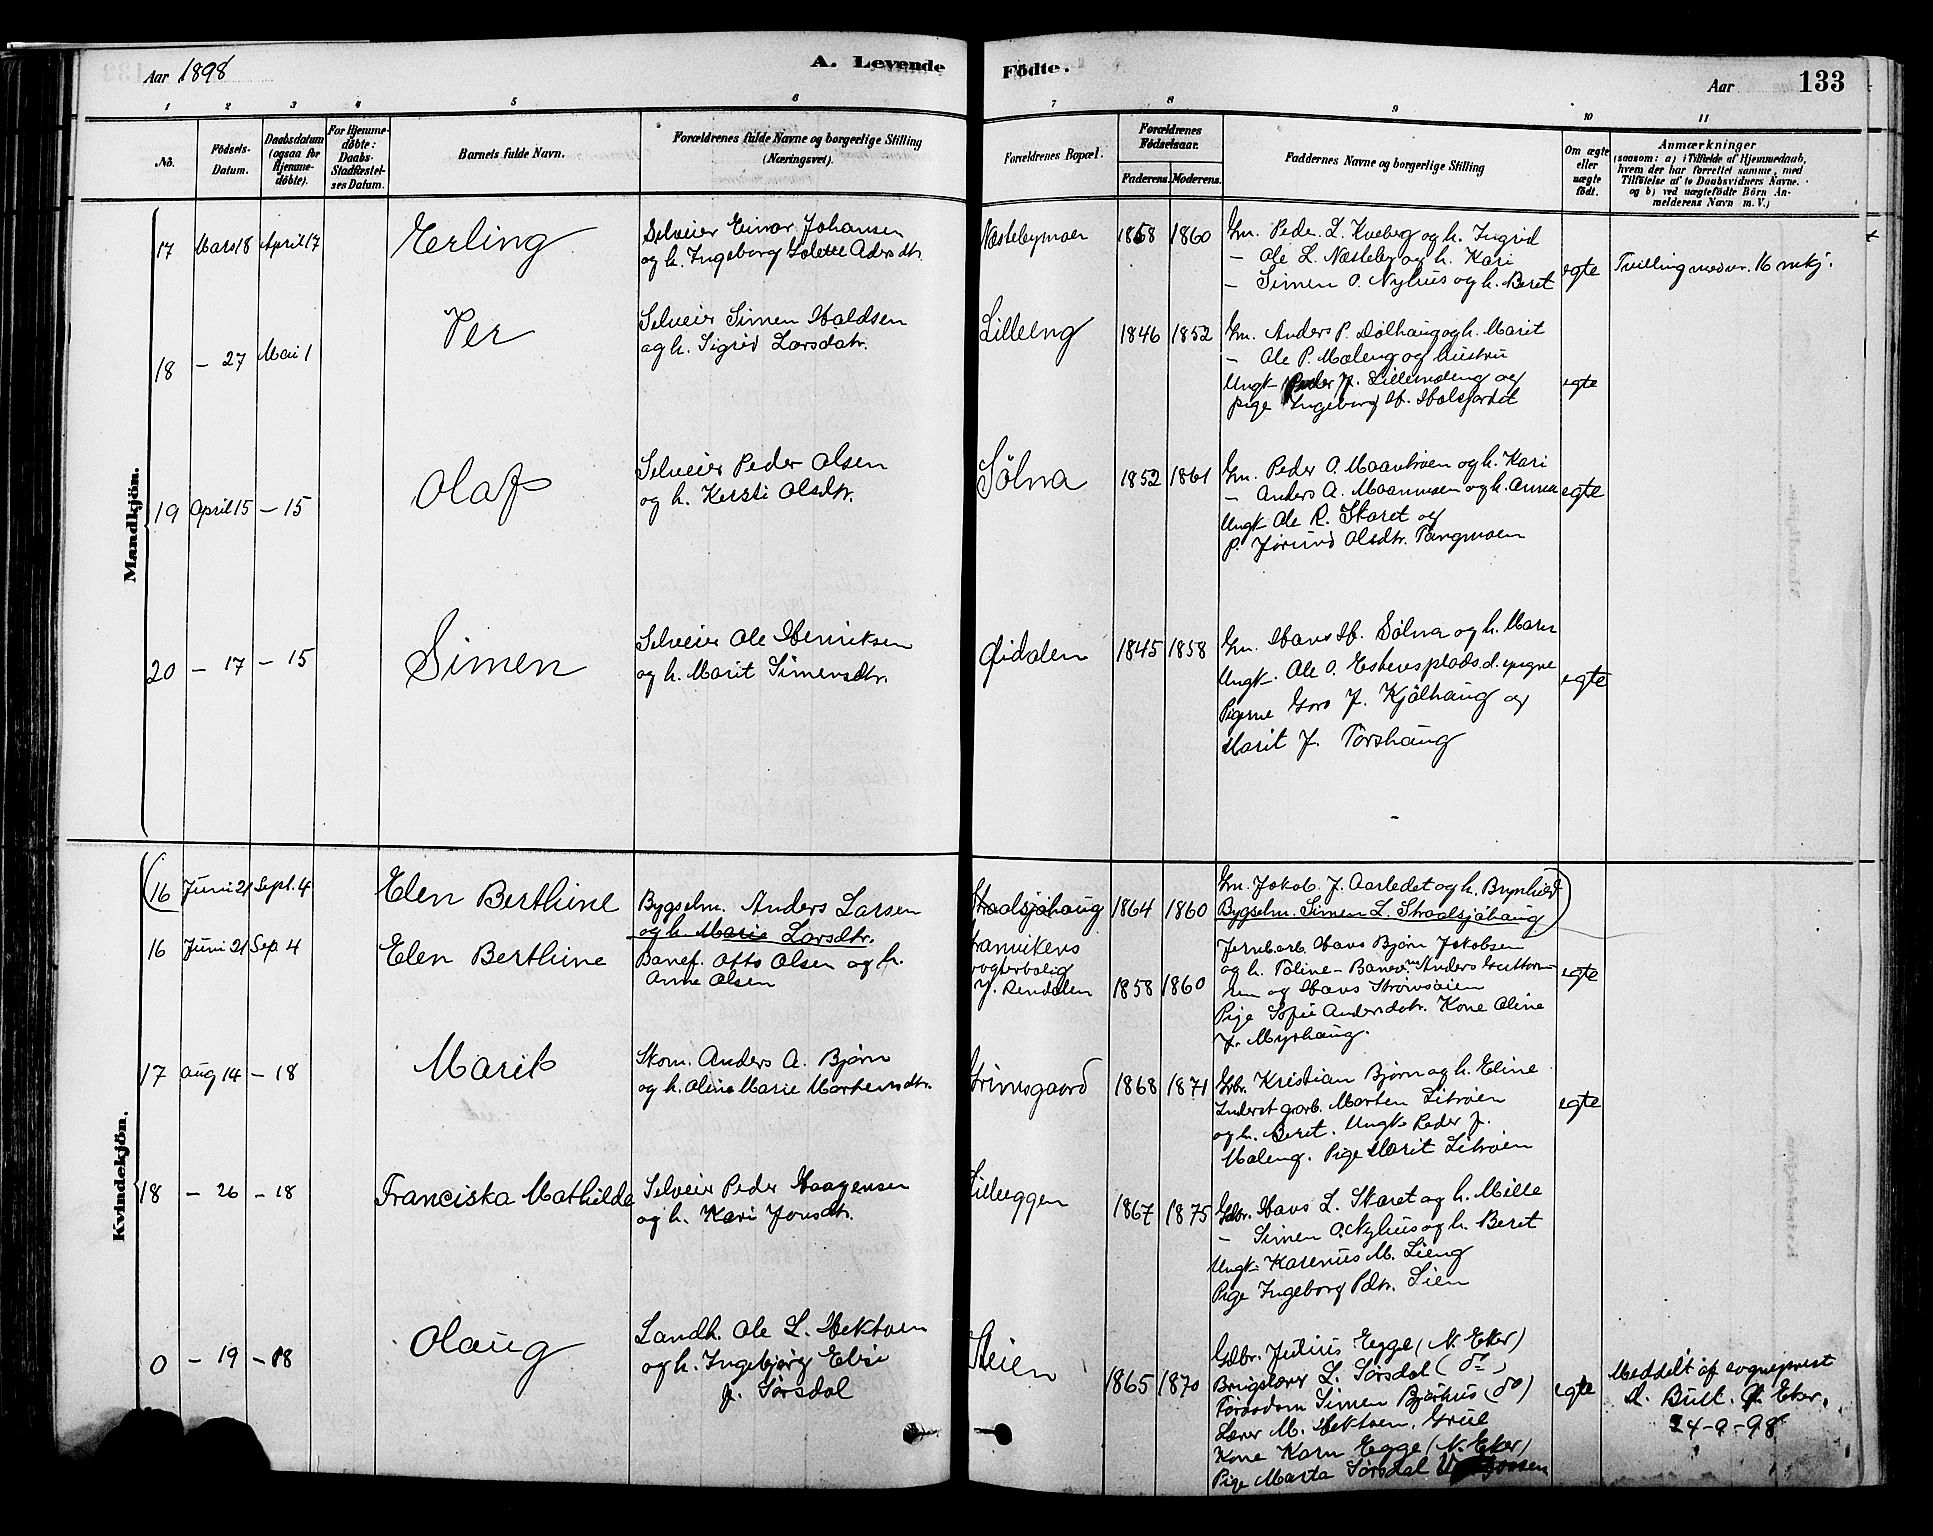 Aar 1898
A. Levende Födte.
Aar 133
1 2 3 4 5 6 7 8 9 10 11
No. Födsels-Datum. Daabsdatum (ogsaa for Hjemme-döbte). For Hjemme-döbte: Daabs-Stadfæstel-ses Datum. Barnets fulde Navn. Forældrenes fulde Navne og borgerlige Stilling (Næringsvei). Forældrenes Bopæl. Forældrenes Födselsaar. Faderens. Moderens. Faddernes Navne og borgerlige Stilling Om ægte eller uægte födt. Anmærkninger (saasom: a) i Tilfælde af Hjemmedaab, hvem der har forrettet samme, med Tilföielse af to Daabsvidners Navne. og b) ved uægtefödte Börn An-melderens Navn m. V.)
Mandkjön.
17 Mars 18 April 17 Erling
Selveier Einar Johansen
og h. Ingeborg Golette Adersdtr.
Næstebymoen 1858 1860
Gm. Peder L. Kveberg og h. Ingrid
– Ole L. Næsteby og h. Kari
– Simen O. Nyhus og h. Beret
egte Tvilling med nr. 16 mkj.
18 – 27 Mai 1 Per
Selveier Simen Haldsen
og h. Sigrid Larsdatr.
Lilleeng 1846 1852
Gm. Anders P. Dølhaug og h. Marit
– Ole P. Maleng og hustru
Ungk. Peder J. Lillemoeng og
pige Ingeborg H.
egte
19 April 15 – 15 Olaf
Selveier Peder Olsen
og h. Kersti Olsdtr.
Sölna 1852 1861
Gm. Peder O. og h. Kari
– Anders A. Moanmoen og h. Anna
Ungk. Ole R. Skaret og
P. Jörund Olsdtr. Tangmoen
egte
20 – 17 – 15 Simen
Selveier Ole Henriksen
og h. Marit Simensdtr.
Öidalen 1845 1858
Gm. Hans H. Sölna og h. Maren
Ungk. Ole O. Estensplads d. yngre
Pigerne Goro J. Kjölhaug og
Marit J. Torshaug
egte
Kvindekjön.
(16 Juni 21 Sept. 4 Elen Berthine
Bygselm. Anders Larsen
og h. Marie Larsdtr.
Straalsjöhaug 1864 1860
Gm. Jakob J. Aarledet og h. Brynhild
Bygselm. Simen L. Straalsjöhaug)
16 Juni 21 Sep. 4 Elen Berthine
Banef. Otto Olsen og h.
Anne Olsen
vogterbolig
Y. Rendalen 1858 1860
Jernb.arb. Hans Bjørn Jakobsen
og h. Poline – Banev. Anders
og Hans
Pige Sofie Andersdatr. Kone Oline
J. Myrhaug.
egte
17 Aug 14 – 18 Marit
Skom. Anders A. Bjørn
og h. Oline Marie Mortensdtr.
Grimsgaard 1868 1871
Gbr. Kristian Bjørn og h. Eline
Inderst garb. Morten Litröen
og h. Beret. Ungk. Peder J.
Maleng. Pige Marit Litröen
egte
18 – 26 – 18 Franciska Mathilde
Selveier Peder Haagensen
og h. Kari Jonsdtr.
Lilleeggen 1867 1875
Gdbr. Hans L. Skaret og h. Mille
– Simen O. Nyhus og h. Beret
Ungk. Karenus M. Lieng
Pige Ingeborg Pdtr. Lien
0 – 19 – 18 Olaug
Landh. Ole L. Hektoen
og h. Ingebjørg Elise
J. Sørsdal
Steien 1865 1870
Gdbr. Julius Egge (N. Eker)
Brugslærer L. Sørsdal (do)
Simen Bjørhus (do)
Lærer M. Hektoen. Grue
Kone Karn Egge (N. Eker)
Pige Marta Sørsdal
egte
Meddelt af sogneprest
Bull. Eker.
24-9-98